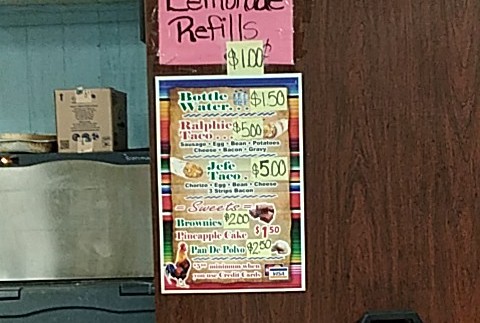 Lemonade
Refills
$1.00
Bottle
Water. . $1.50
Ralphie
Taco . . . $5.00
Sausage • Egg • Bean • Potatoes
Cheese • Bacon • Gravy
Jefe
Taco . $5.00
Chorizo • Egg • Bean • Cheese
3 Strips Bacon
Sweets
Brownies $2.00
Pineapple Cake $1.50
Pan De Polvo $2.50
minimum when
you use Credit Cards
VISA